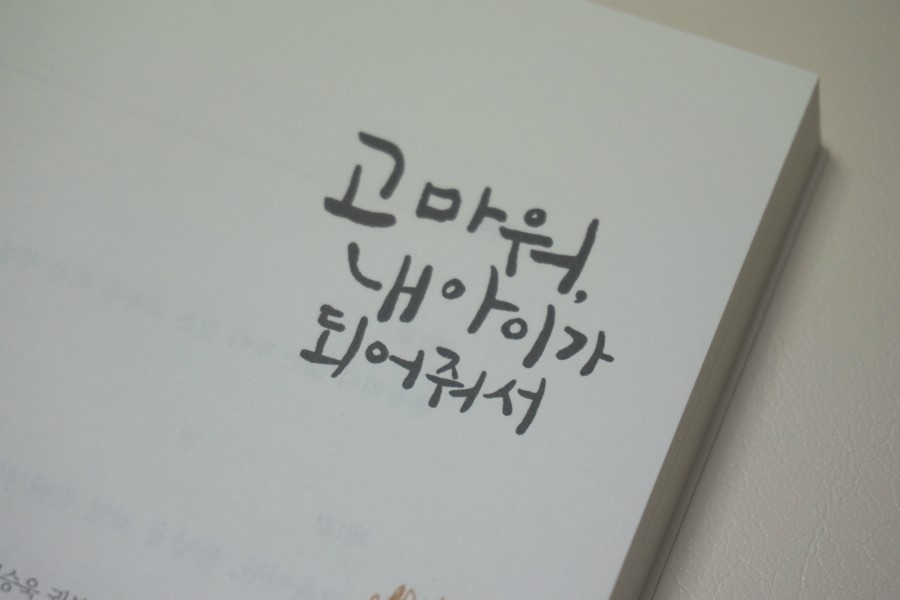 고마워,
내 아이가
되어줘서